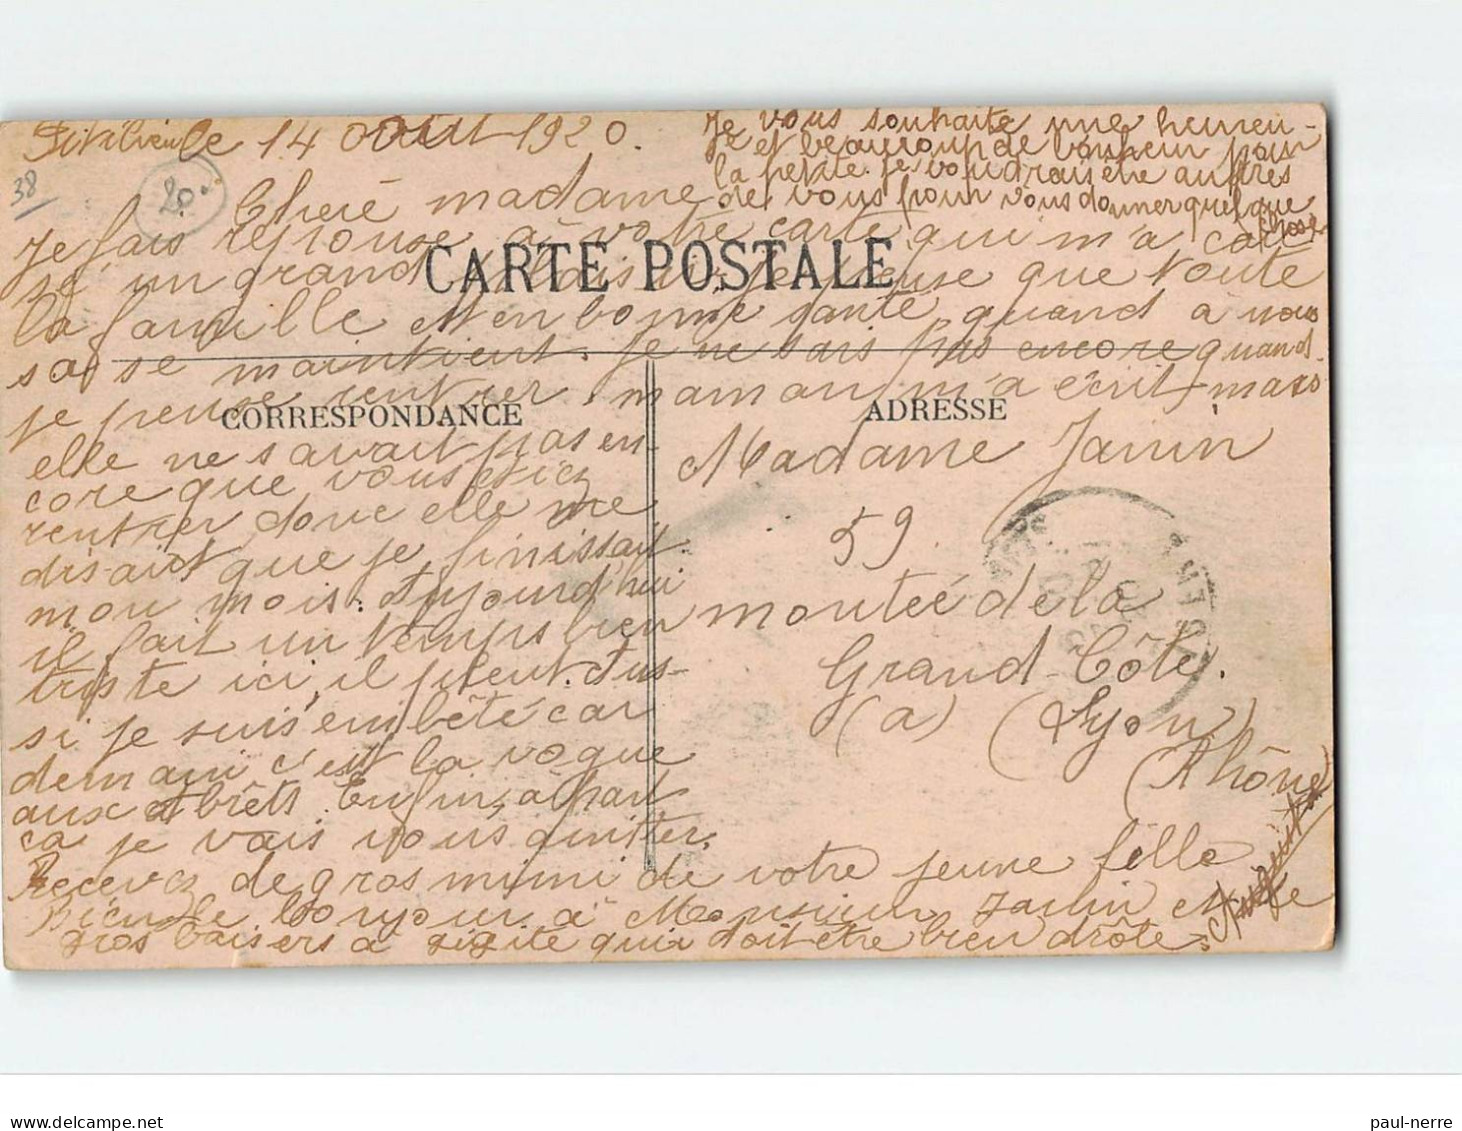 14 Août 1920.
Je vous souhaite une heureu-
se et beaucoup de bonheur pour
la petite. je voudrais être auprès
de vous pour vous donner quelque
chose
38
20
Chère madame
Je fais réponse à votre carte qui m'a cau
sé un grand plaisir. je pense que toute
la famille est en bonne santé quand à nous
sa se maintient. Je ne sais pas encore quand
je pense rentrer. maman m'a écrit mais
CARTE POSTALE
CORRESPONDANCE
ADRESSE
elle ne savait pas en-
core que vous étiez
rentrer donc elle me
disait que je finissait
mon mois. Aujourd'hui
il fait un temps bien
triste ici, il pleut. Aus-
si je suis embêté car
demain c'est la vogue
aux Abrèts. Enfin, à part
ca je vais vous quitter.
Recevez de gros mimi de votre jeune fille
Bien le bonjour à Monsieur Janin et de
gros baisers à zizite qui doit être bien drôle.
Madame Janin
59
montée de la
Grand-Côte.
(a) (Lyon)
(Rhône)
paul-nerre